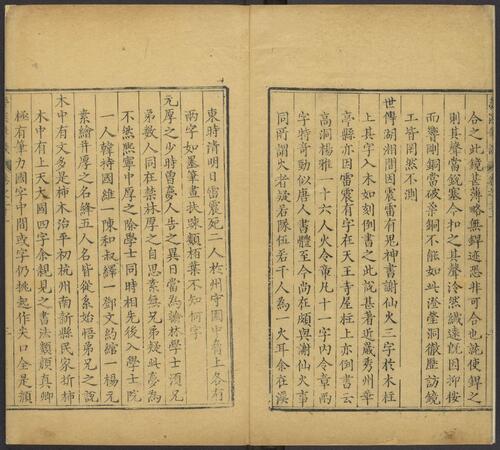 合之此鏡甚薄略無銲迹恐非可合也就使銲之
則其聲當銑塞今扣之其聲泠然纖遠既因抑按
而響剛銅當破柔銅不能如此澄瑩洞徹歷訪鏡
工皆罔然不測
世傳湖湘間因震雷有鬼神書謝仙火三字於木柱
上其字入木如刻倒書之此說甚著近歲秀州華
亭縣亦因雷震有字在天王寺屋柱上亦倒書云
高洞楊雅一十六人火令章凡十一字內令章兩
字特奇勁似唐人書體至今尚在頗與謝仙火事
同所謂火者疑若隊伍若干人為一火耳余在漢
東時清明日雷震死二人於州守園中脅上各有
兩字如墨筆畫扶疎類栢葉不知何字
元厚之少時曾夢人告之異日當為翰林學士須兄
弟數人同在禁林厚之自思素無兄弟疑此夢為
不然熙寧中厚之除學士同時相先後入學士院
一人韓持國維一陳和叔繹一鄧文約綰一楊元
素繪并厚之名絳五人名皆從糸始悟弟兄之說
木中有文多是柿木治平初杭州南新縣民家折柿
木中有上天大國四字余親見之書法類顏真卿
極有筆力國字中間或字仍挑起作尖口全是顏